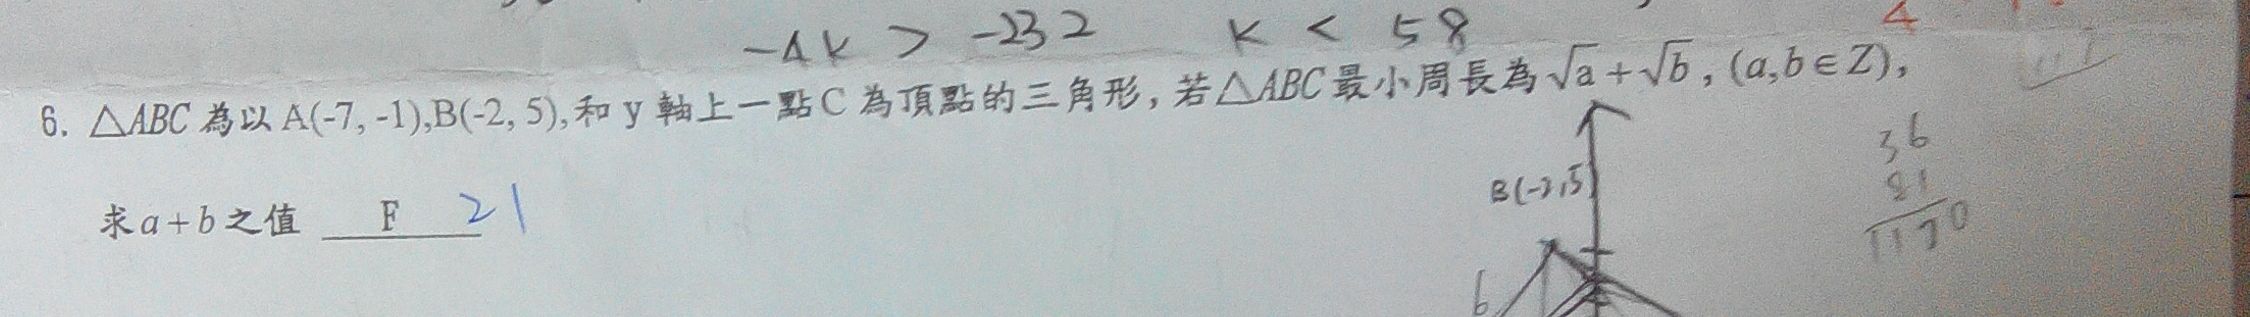 -4k > -232 k < 58
6. △ABC 為以 A(-7, -1),B(-2, 5),和 y 軸上一點 C 為頂點的三角形, 若△ABC 最小周長為 √a + √b , (a,b∈Z),
求 a + b 之值 F 21
B(-2,5)
36
81
1170
6